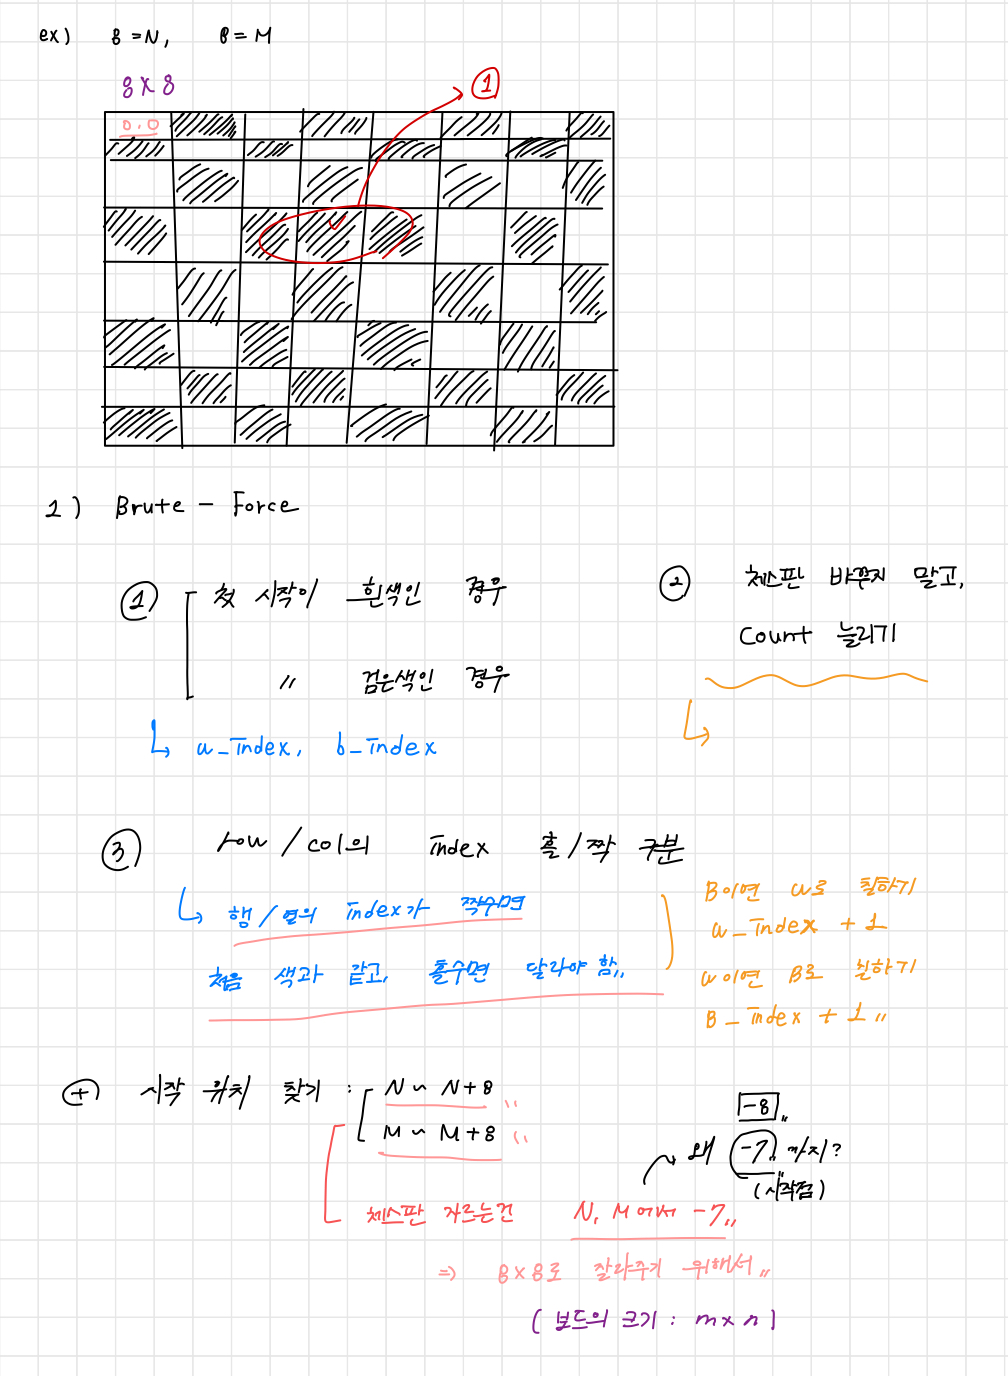 ex) 8 = N, 8 = M
8 x 8
①
0.0
1) Brute - Force
① 첫 시작이 흰색인 경우
〃 검은색인 경우
↳ w_Index, b_Index
② 체스판 바꾸지 말고,
Count 늘리기
↳
③ row / col의 Index 홀/짝 구분
↳ 행/열의 Index가 짝수면
처음 색과 같고, 홀수면 달라야 함〃
B이면 W로 칠하기
W_Index + 1
W이면 B로 칠하기
B_Index + 1〃
⊕ 시작 위치 찾기 : N ~ N+8〃
M ~ M+8〃
-8〃
왜 -7〃까지?
(시작점)
체스판 자르는건 N, M에서 -7〃
⇒ 8x8로 잘라주기 위해서〃
( 보드의 크기 : m x n )